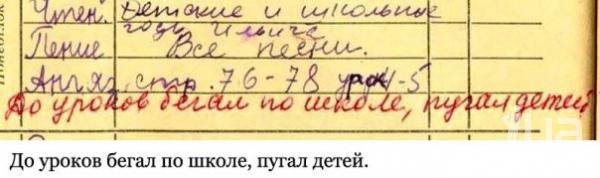 Чтен. Детские и школьные
годы Ильича
Пение Все песни.
Англяз. стр. 76-78 урок 4-5
До уроков бегал по школе, пугал детей
До уроков бегал по школе, пугал детей.